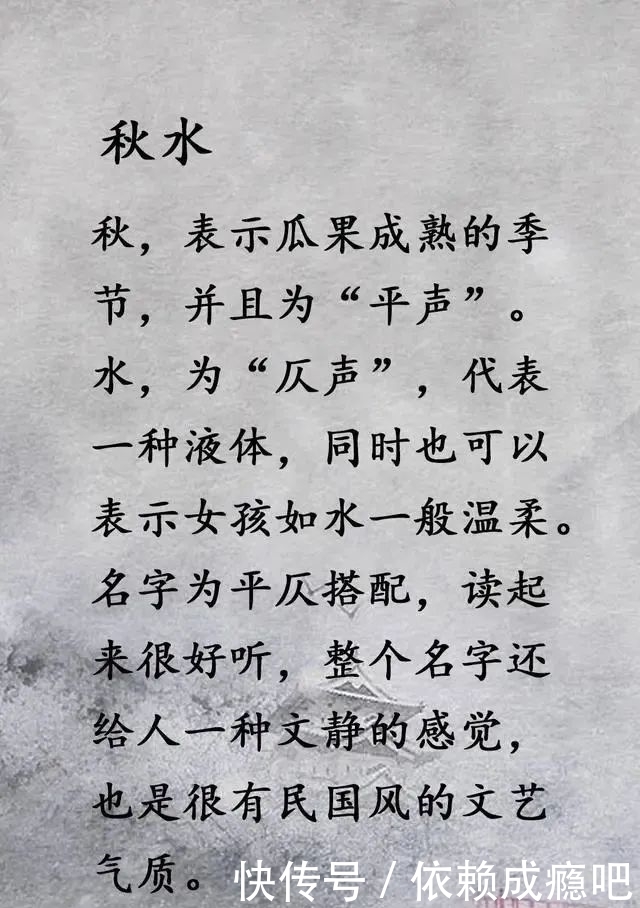 秋水
秋，表示瓜果成熟的季
节，并且为“平声”。
水，为“仄声”，代表
一种液体，同时也可以
表示女孩如水一般温柔。
名字为平仄搭配，读起
来很好听，整个名字还
给人一种文静的感觉，
也是很有民国风的文艺
气质。
快传号 / 依赖成瘾吧